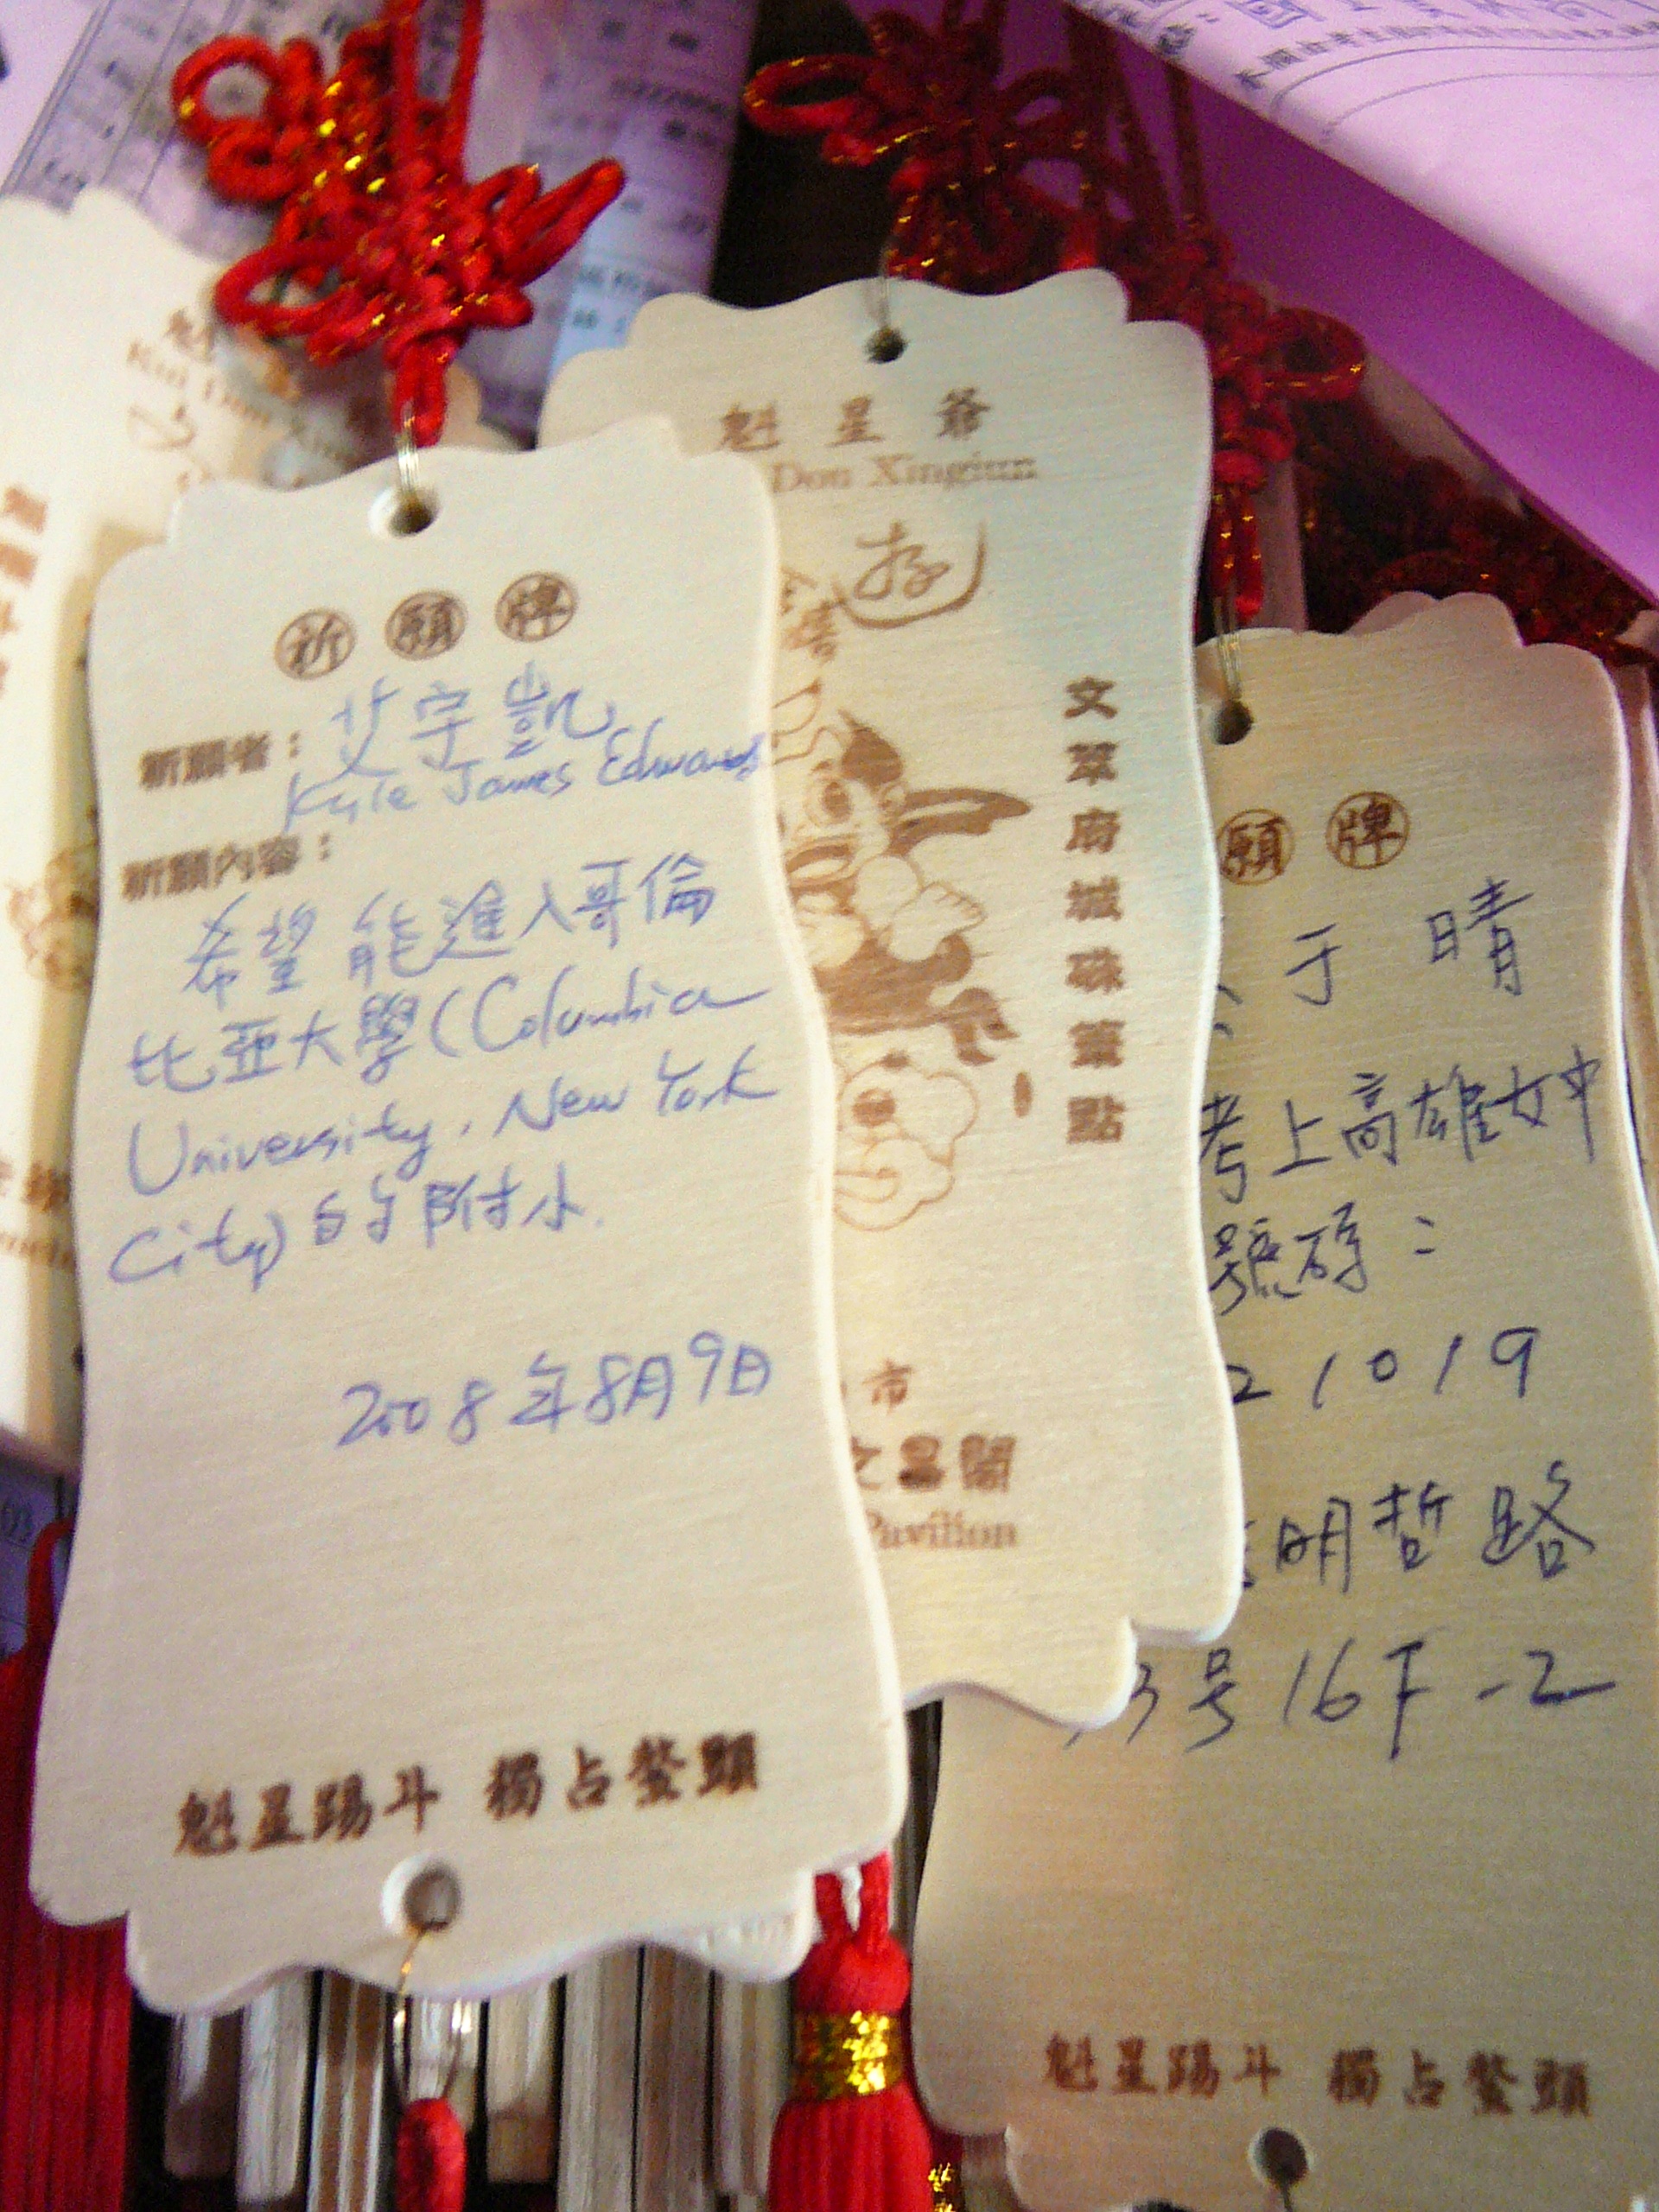 祈願牌
祈願者：艾宇凱
Kyle James Edwards
祈願內容：
希望能進入哥倫
比亞大學(Columbia
University, New York
City)的附小.
2008年8月9日
魁星踢斗 獨占鰲頭
魁星爺
Dou Xingjun
文萃府城硃筆點
市
文昌閣
Pavilion
願牌
于晴
考上高雄女中
號碼：
21019
明哲路
3号16F-2
魁星踢斗 獨占鰲頭